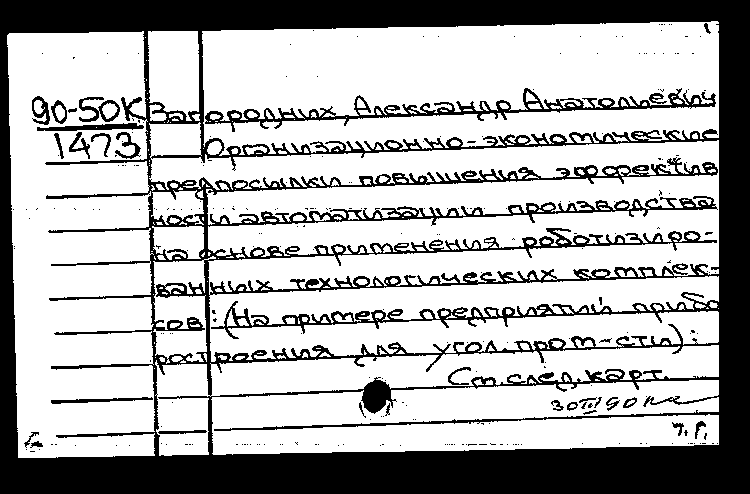 90-50К Загородних, Александр Анатольевич
1473 Организационно-экономические
предпосылки повышения эффектив
ности автоматизации производства
на основе применения роботизиро-
ванных технологических комплек-
сов: (На примере предприятий прибо
ростроения для угол. пром-сти):
См. след. карт.
30 III 90
т. р.